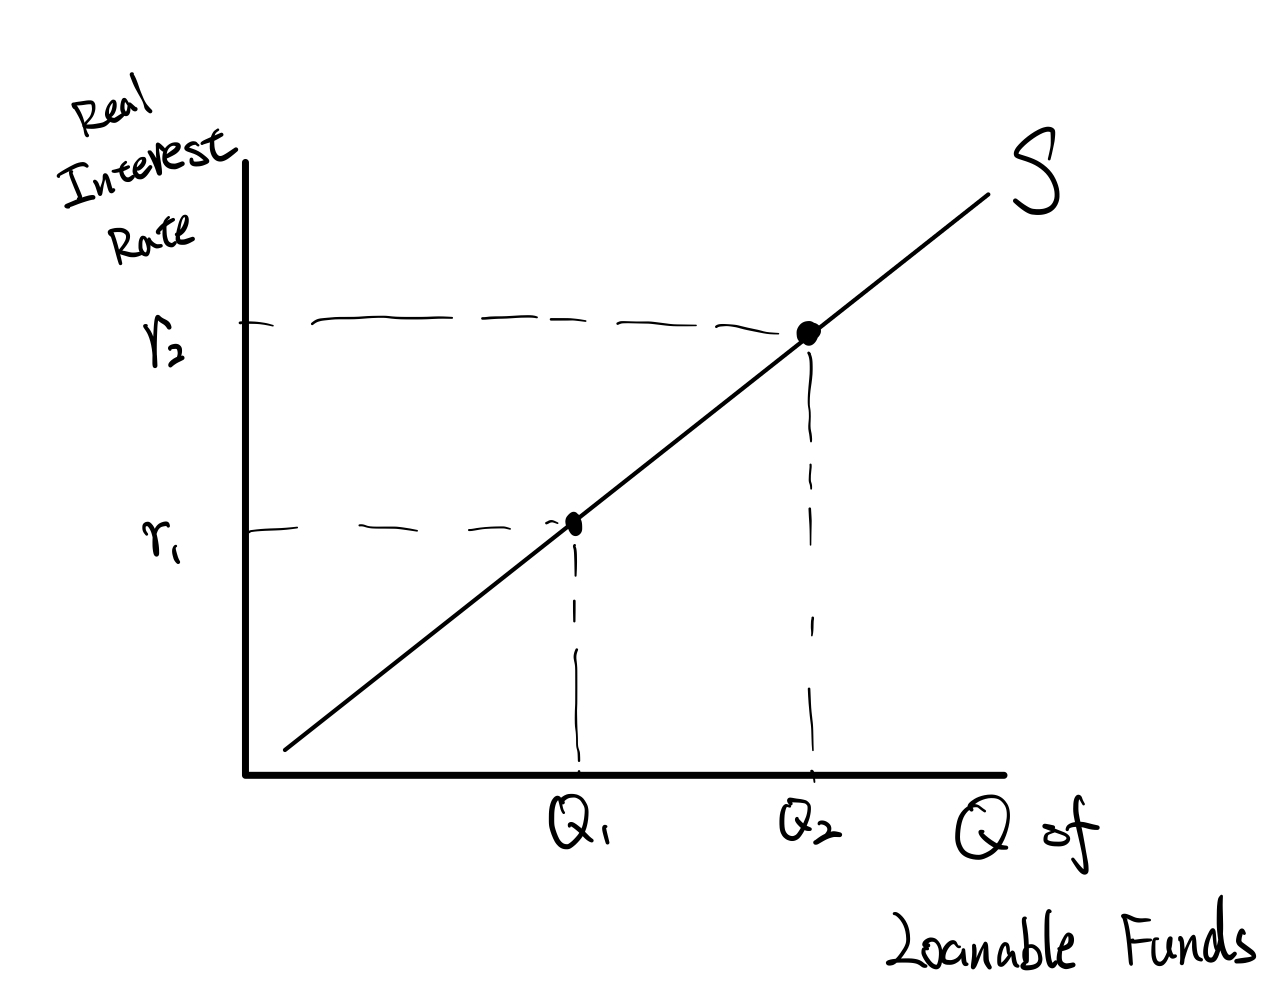 Real
Interest
Rate
S
r₂
r₁
Q₁
Q₂
Q of
Loanable Funds